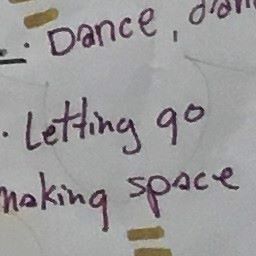 . Dance,
. Letting go
making space